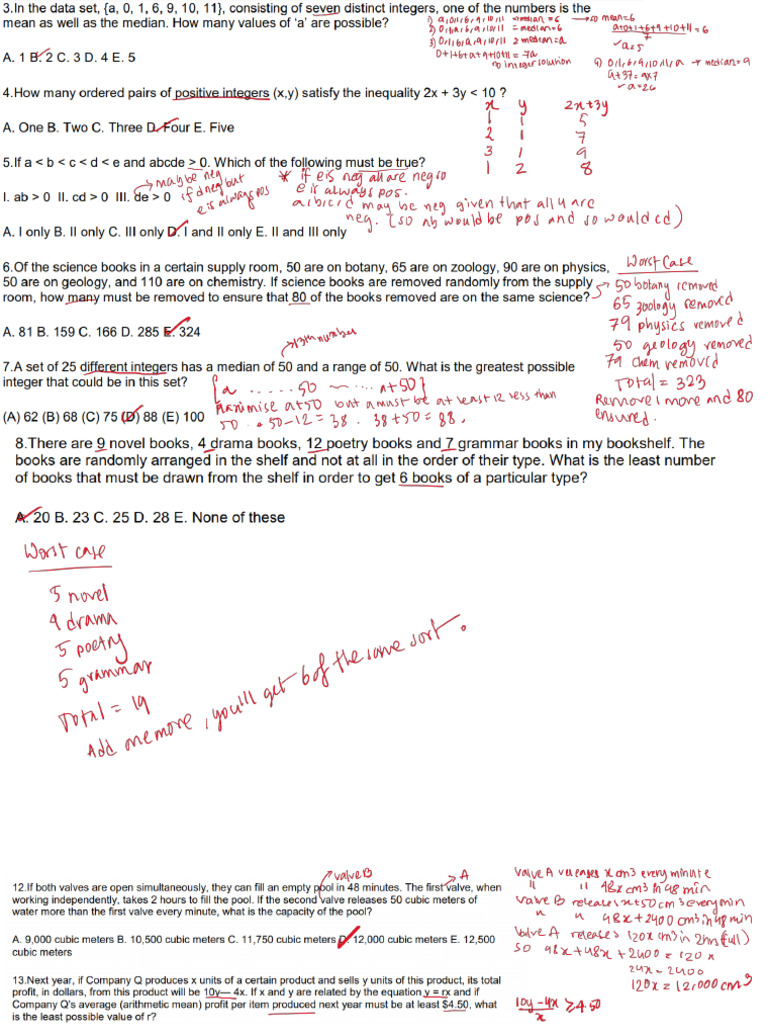 3.In the data set, {a, 0, 1, 6, 9, 10, 11}, consisting of seven distinct integers, one of the numbers is the
mean as well as the median. How many values of ‘a’ are possible?
1) a,0,1,6,9,10,11 → median = 6 → so mean=6
2) 0,1,a,6,9,10,11 → median=6
3) 0,1,6,a,9,10,11 2 median=a
0+1+6+a+9+10+11 = 7a
no integer solution
a+0+1+6+9+10+11 = 6
7
✓a=5
4) 0,1,6,9,10,11,a → median=9
a+37 = 9x7
✓a=26
A. 1 B. 2 C. 3 D. 4 E. 5
4.How many ordered pairs of positive integers (x,y) satisfy the inequality 2x + 3y < 10 ?
x y 2x+3y
1 1 5
2 1 7
3 1 9
1 2 8
A. One B. Two C. Three D. Four E. Five
5.If a < b < c < d < e and abcde > 0. Which of the following must be true?
→ may be neg
if d neg but
e is always pos
* if e is neg all are neg so
e is always pos.
a,b,c,d may be neg given that all 4 are
neg. (so ab would be pos and so would cd)
I. ab > 0 II. cd > 0 III. de > 0
A. I only B. II only C. III only D. I and II only E. II and III only
6.Of the science books in a certain supply room, 50 are on botany, 65 are on zoology, 90 are on physics,
50 are on geology, and 110 are on chemistry. If science books are removed randomly from the supply
room, how many must be removed to ensure that 80 of the books removed are on the same science?
Worst Case
→ 50 botany removed
65 zoology removed
79 physics removed
50 geology removed
79 chem removed
Total = 323
Remove 1 more and 80
ensured.
A. 81 B. 159 C. 166 D. 285 E. 324
→13th number
7.A set of 25 different integers has a median of 50 and a range of 50. What is the greatest possible
integer that could be in this set?
{a ...... 50 ~ .... a+50}
Maximise a+50 but a must be at least 12 less than
50 . 50-12 = 38 . 38+50 = 88.
(A) 62 (B) 68 (C) 75 (D) 88 (E) 100
8.There are 9 novel books, 4 drama books, 12 poetry books and 7 grammar books in my bookshelf. The
books are randomly arranged in the shelf and not at all in the order of their type. What is the least number
of books that must be drawn from the shelf in order to get 6 books of a particular type?
A. 20 B. 23 C. 25 D. 28 E. None of these
Worst case
5 novel
4 drama
5 poetry
5 grammar
Total = 19
Add one more, you'll get 6 of the same sort.
→valve B
→ A
12.If both valves are open simultaneously, they can fill an empty pool in 48 minutes. The first valve, when
working independently, takes 2 hours to fill the pool. If the second valve releases 50 cubic meters of
water more than the first valve every minute, what is the capacity of the pool?
A. 9,000 cubic meters B. 10,500 cubic meters C. 11,750 cubic meters D. 12,000 cubic meters E. 12,500
cubic meters
Valve A releases x cm3 every minute
" " 48x cm3 in 48 min
Valve B releases x+50 cm3 every min
" " 48x+2400 cm3 in 48 min
Valve A releases 120x cm3 in 2hrs (full)
So 48x+48x+2400 = 120x
24x = 2400
120x = 12,000 cm3
13.Next year, if Company Q produces x units of a certain product and sells y units of this product, its total
profit, in dollars, from this product will be 10y— 4x. If x and y are related by the equation y = rx and if
Company Q's average (arithmetic mean) profit per item produced next year must be at least $4.50, what
is the least possible value of r?
10y-4x ≥ 4.50
x